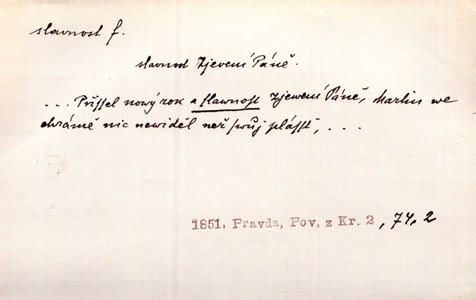 slavnost f.
slavnost Zjevení Páně.
... Přissel nowý rok a slawnost Zjewení Páně, Martin we
chrámě nic newiděl než swůj plášť, ...
1851. Pravda, Pov. z Kr. 2, 74, 2